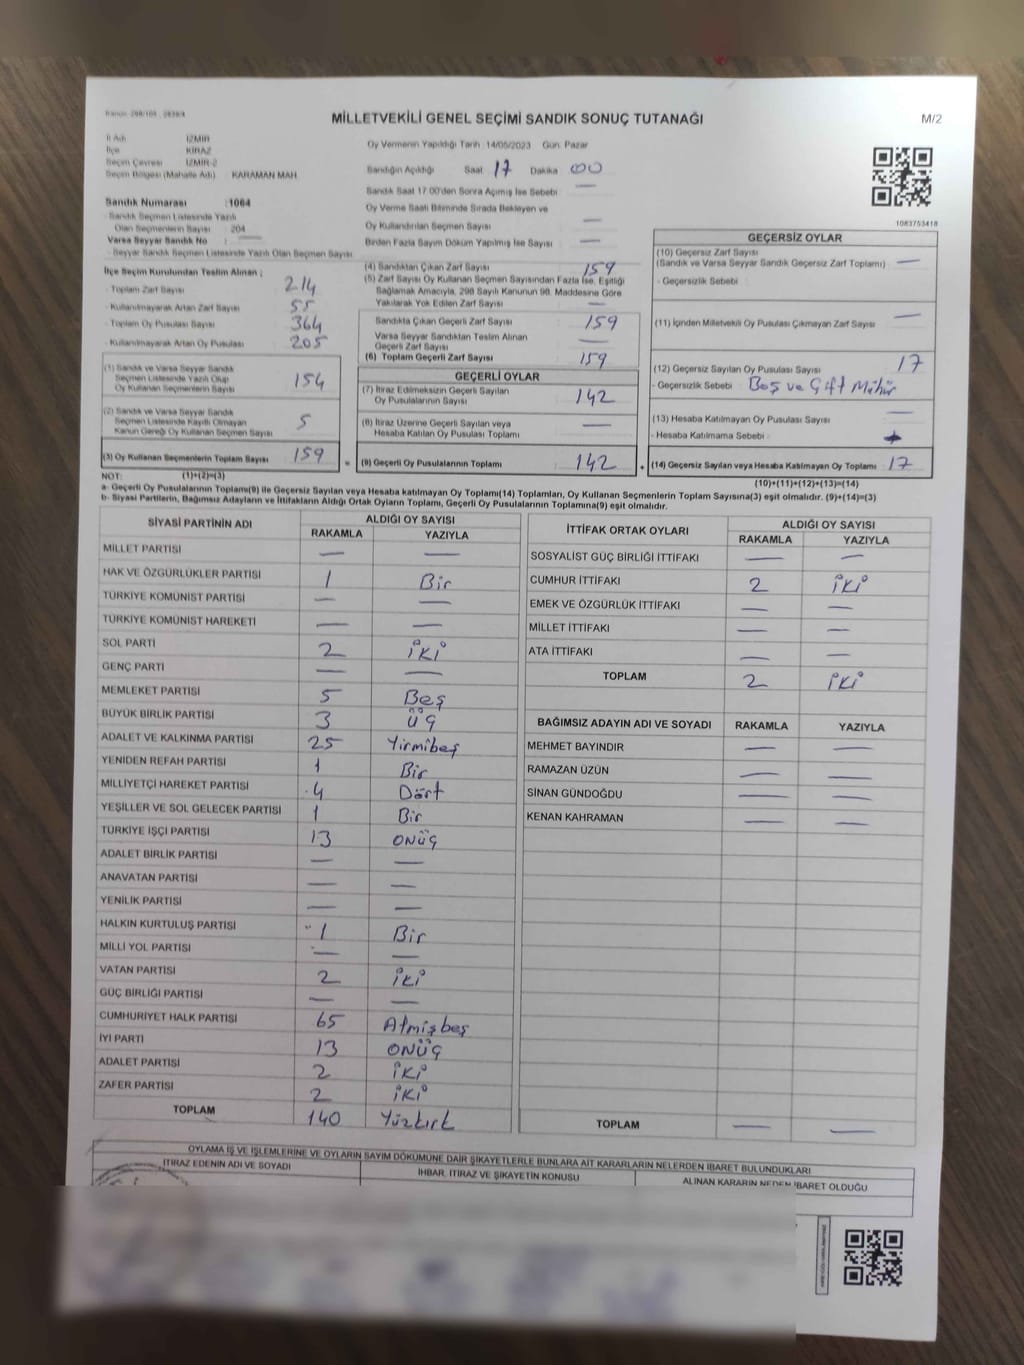 MİLLETVEKİLİ GENEL SEÇİMİ SANDIK SONUÇ TUTANAĞI
M/2
İl Adı İZMİR
İlçe KİRAZ
Seçim Çevresi İZMİR-2
Seçim Bölgesi (Mahalle Adı) : KARAMAN MAH
Sandık Numarası :1064
- Sandık Seçmen Listesinde Yazılı
Olan Seçmenlerin Sayısı : 204
Varsa Seyyar Sandık No : —
- Seyyar Sandık Seçmen Listesinde Yazılı Olan Seçmen Sayısı
Oy Vermenin Yapıldığı Tarih :14/05/2023 Gün: Pazar
Sandığın Açıldığı Saat 17 Dakika 00
Sandık Saat 17:00'den Sonra Açılmış İse Sebebi —
Oy Verme Saati Bitiminde Sırada Bekleyen ve
Oy Kullandırılan Seçmen Sayısı —
Birden Fazla Sayım Döküm Yapılmış İse Sayısı —
1083753418
İlçe Seçim Kurulundan Teslim Alınan ;
- Toplam Zarf Sayısı 214
- Kullanılmayarak Artan Zarf Sayısı 55
- Toplam Oy Pusulası Sayısı 364
- Kullanılmayarak Artan Oy Pusulası 205
(1) Sandık ve Varsa Seyyar Sandık
Seçmen Listesinde Yazılı Olup
Oy Kullanan Seçmenlerin Sayısı 154
(2) Sandık ve Varsa Seyyar Sandık
Seçmen Listesinde Kayıtlı Olmayan
Kanun Gereği Oy Kullanan Seçmen Sayısı 5
(3) Oy Kullanan Seçmenlerin Toplam Sayısı 159
(4) Sandıktan Çıkan Zarf Sayısı 159
(5) Zarf Sayısı Oy Kullanan Seçmen Sayısından Fazla İse, Eşitliği
Sağlamak Amacıyla, 298 Sayılı Kanunun 98. Maddesine Göre
Yakılarak Yok Edilen Zarf Sayısı —
Sandıkta Çıkan Geçerli Zarf Sayısı 159
Varsa Seyyar Sandıktan Teslim Alınan
Geçerli Zarf Sayısı —
(6) Toplam Geçerli Zarf Sayısı 159
GEÇERLİ OYLAR
(7) İtiraz Edilmeksizin Geçerli Sayılan
Oy Pusulalarının Sayısı 142
(8) İtiraz Üzerine Geçerli Sayılan veya
Hesaba Katılan Oy Pusulası Toplamı —
= (9) Geçerli Oy Pusulalarının Toplamı 142 +
GEÇERSİZ OYLAR
(10) Geçersiz Zarf Sayısı
(Sandık ve Varsa Seyyar Sandık Geçersiz Zarf Toplamı) —
- Geçersizlik Sebebi :
(11) İçinden Milletvekili Oy Pusulası Çıkmayan Zarf Sayısı —
(12) Geçersiz Sayılan Oy Pusulası Sayısı 17
- Geçersizlik Sebebi : Boş ve Çift Mühür
(13) Hesaba Katılmayan Oy Pusulası Sayısı —
- Hesaba Katılmama Sebebi :
(14) Geçersiz Sayılan veya Hesaba Katılmayan Oy Toplamı 17
NOT: (1)+(2)=(3)
(10)+(11)+(12)+(13)=(14)
a- Geçerli Oy Pusulaları Toplamı(9) ile Geçersiz Sayılan veya Hesaba katılmayan Oy Toplamı(14) Toplamları, Oy Kullanan Seçmenlerin Toplam Sayısına(3) eşit olmalıdır. (9)+(14)=(3)
b- Siyasi Partilerin, Bağımsız Adayların ve İttifakların Aldığı Ortak Oyların Toplamı, Geçerli Oy Pusulalarının Toplamına(9) eşit olmalıdır.
SİYASİ PARTİNİN ADI ALDIĞI OY SAYISI
RAKAMLA YAZIYLA
MİLLET PARTİSİ — —
HAK VE ÖZGÜRLÜKLER PARTİSİ 1 Bir
TÜRKİYE KOMÜNİST PARTİSİ — —
TÜRKİYE KOMÜNİST HAREKETİ — —
SOL PARTİ 2 İKİ
GENÇ PARTİ — —
MEMLEKET PARTİSİ 5 Beş
BÜYÜK BİRLİK PARTİSİ 3 üç
ADALET VE KALKINMA PARTİSİ 25 Yirmibeş
YENİDEN REFAH PARTİSİ 1 Bir
MİLLİYETÇİ HAREKET PARTİSİ 4 Dört
YEŞİLLER VE SOL GELECEK PARTİSİ 1 Bir
TÜRKİYE İŞÇİ PARTİSİ 13 ONÜÇ
ADALET BİRLİK PARTİSİ — —
ANAVATAN PARTİSİ — —
YENİLİK PARTİSİ — —
HALKIN KURTULUŞ PARTİSİ 1 Bir
MİLLİ YOL PARTİSİ — —
VATAN PARTİSİ 2 İKİ
GÜÇ BİRLİĞİ PARTİSİ — —
CUMHURİYET HALK PARTİSİ 65 Atmışbeş
İYİ PARTİ 13 ONÜÇ
ADALET PARTİSİ 2 İKİ
ZAFER PARTİSİ 2 İKİ
TOPLAM 140 Yüzkırk
İTTİFAK ORTAK OYLARI ALDIĞI OY SAYISI
RAKAMLA YAZIYLA
SOSYALİST GÜÇ BİRLİĞİ İTTİFAKI — —
CUMHUR İTTİFAKI 2 İKİ
EMEK VE ÖZGÜRLÜK İTTİFAKI — —
MİLLET İTTİFAKI — —
ATA İTTİFAKI — —
TOPLAM 2 İKİ
BAĞIMSIZ ADAYIN ADI VE SOYADI RAKAMLA YAZIYLA
MEHMET BAYINDIR — —
RAMAZAN ÜZÜN — —
SİNAN GÜNDOĞDU — —
KENAN KAHRAMAN — —
TOPLAM — —
OYLAMA İŞ VE İŞLEMLERİNE VE OYLARIN SAYIM DÖKÜMÜNE DAİR ŞİKAYETLERLE BUNLARA AİT KARARLARIN NELERDEN İBARET BULUNDUKLARI
İTİRAZ EDENİN ADI VE SOYADI
İHBAR, İTİRAZ VE ŞİKAYETİN KONUSU
ALINAN KARARIN NEDEN İBARET OLDUĞU